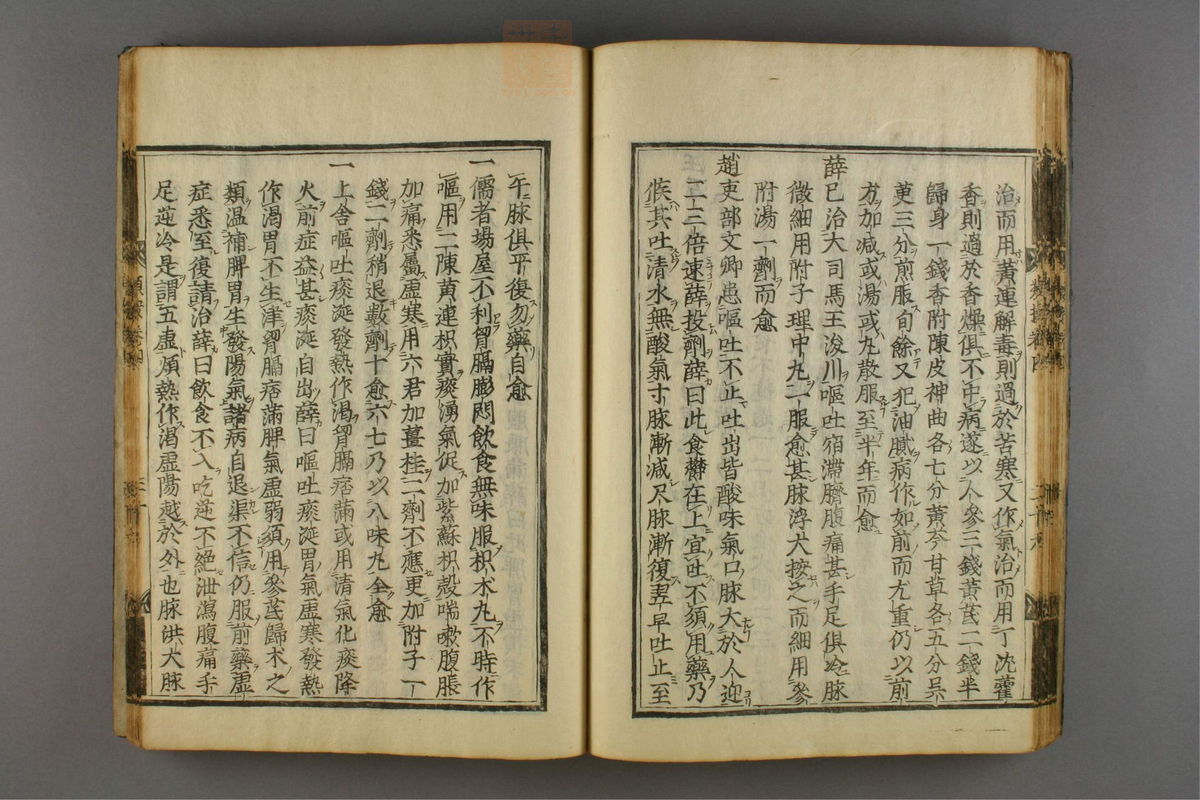 治而用黃連解毒則過於苦寒又作氣治而用丁沈藿
香則過於香燥俱不中病遂以人參三錢黃芪二錢半
歸身一錢香附陳皮神曲各七分黃芩甘草各五分吳
茰三分煎服旬餘又犯油膩病作如前而尤重仍以前
方加減或湯或丸散服至半年而愈
薛已治大司馬王浚川嘔吐宿滯臍腹痛甚手足俱冷脉
微細用附子理中丸二服愈甚脉浮大按之而細用參
附湯一劑而愈
趙吏部文卿患嘔吐不止吐出皆酸味氣口脉大於人迎
二三倍速薛投劑薛曰此食欝在上宜吐不須用藥乃
候其吐清水無酸氣寸脉漸减尺脉漸復翌早吐止至
午脉俱平復勿藥自愈
一儒者塲屋不利胷膈膨悶飲食無味服枳术丸不時作
嘔用二陳黃連枳實痰湧氣促加紫蘇枳殼喘嗽腹脹
加痛悉屬虛寒用六君加薑桂二劑不應更加附子一
錢二劑稍退數劑十愈六七乃以八味丸全愈
一上舍嘔吐痰涎發熱作渴胷膈痞滿或用清氣化痰降
火前症益甚痰涎自出薛曰嘔吐痰涎胃氣虛寒發熱
作渴胃不生津胷膈痞滿脾氣虛弱須用參芪歸术之
類温補脾胃生發陽氣諸病自退渠不信仍服前藥虛
症悉至復請治薛曰飲食不入吃逆不絕泄瀉腹痛手
足逆冷是謂五虛煩熱作渴虛陽越於外也脉洪大脉